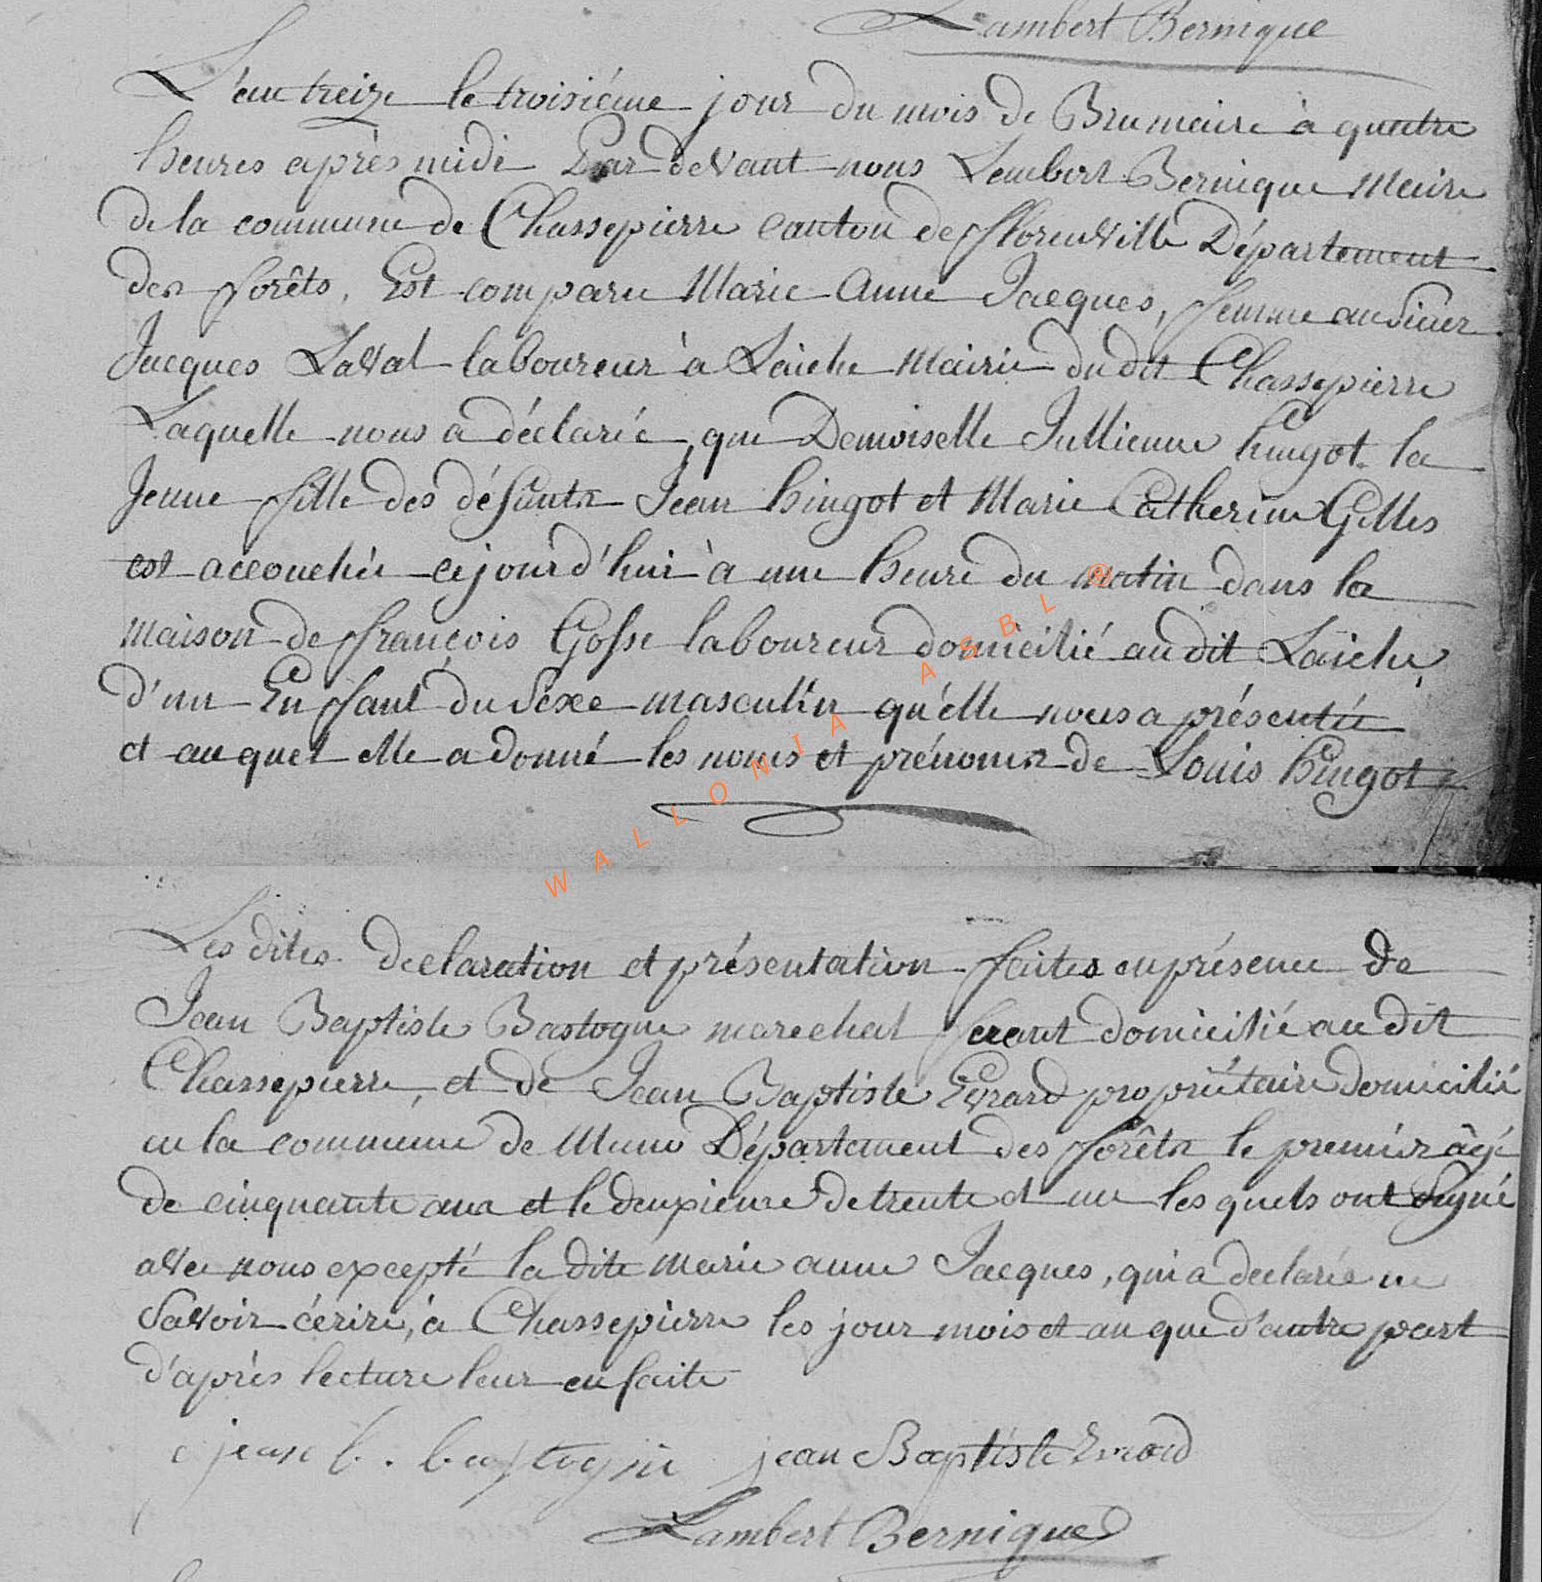 Lambert Bernique
L'an treize le troisiéme jour du mois de Brumaire à quatre
heures après midi Par devant nous Lambert Bernique Maire
de la commune de Chassepierre canton de fflorenville Département
des fforêts. Est comparu Marie Anne Jacques, ffemme au Sieur
Jacques Laval laboureur à Laiche Mairie du dit Chassepierre
Laquelle nous a déclaréé, que Demoiselle Jullienne hingot la
Jeune ffille des défunts Jean hingot et Marie Catherine Gilles
est accouchée cejourd'hui à une heure du matin dans la
maison de ffrançois Gosse laboureur domicilié au dit Laiche,
d'un Enffant du Sexe masculin qu'elle nous a présentée
et auquel elle a donné les noms et prénoms de Louis hingot
WALLONIA ASBL ®
Les dites declaration et présentation faites en présence de
Jean Baptiste Bastogne marechal ferant domicilié au dit
Chassepierre, et de Jean Baptiste Evrard propriétaire domicilié
en la commune de Muno Département des fforêts le premiér âgé
de cinquante ans et le deuxieme de trente et un les quels ont Signé
avec nous excepté la dite Marie anne Jacques, qui a declarée ne
Savoir écrire, à Chassepierre les jour mois et an que d'autre part
d'après lecture leur en faite
jean b. bastogne jean Baptiste Evrard
Lambert Bernique